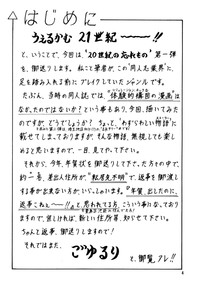 はじめに
うぇるかむ 21世紀〜〜!!
と、いうことで、今回は、'20世紀の忘れもの'第一弾
を、御送りします。私こと筆者が、この"同人業界"に、
足を踏み入れる前に、ブレイクしていたジャンルです。
たぶん、当時の同人誌では、"体験的構図の漫画"は
なが、たのではないか?という事もあり、今回、描いてみた
のですが、どうでしょうか? ちょっと、"わすられない物語"に
載せてしまっておりますが、そんな物語、無視してもらい
と思いますので、一目、見てやって下さい。
それから、今年、年賀状を御送りして下さった方の中で、
約二名、差出住所が"転居先不明"で、返事を御渡し
する事が出来ない方が、いらっしゃいます。"年賀、出したのに、
返事こねぇ〜〜!!"と、思われてる方、こういう事に、なっており
ますので、宜しければ、新しい住所等、知らせて下さい。
ちゃんと返事、御送りしますので!
それではまた、
ごゆるり
と、御覧、アレ!!
4